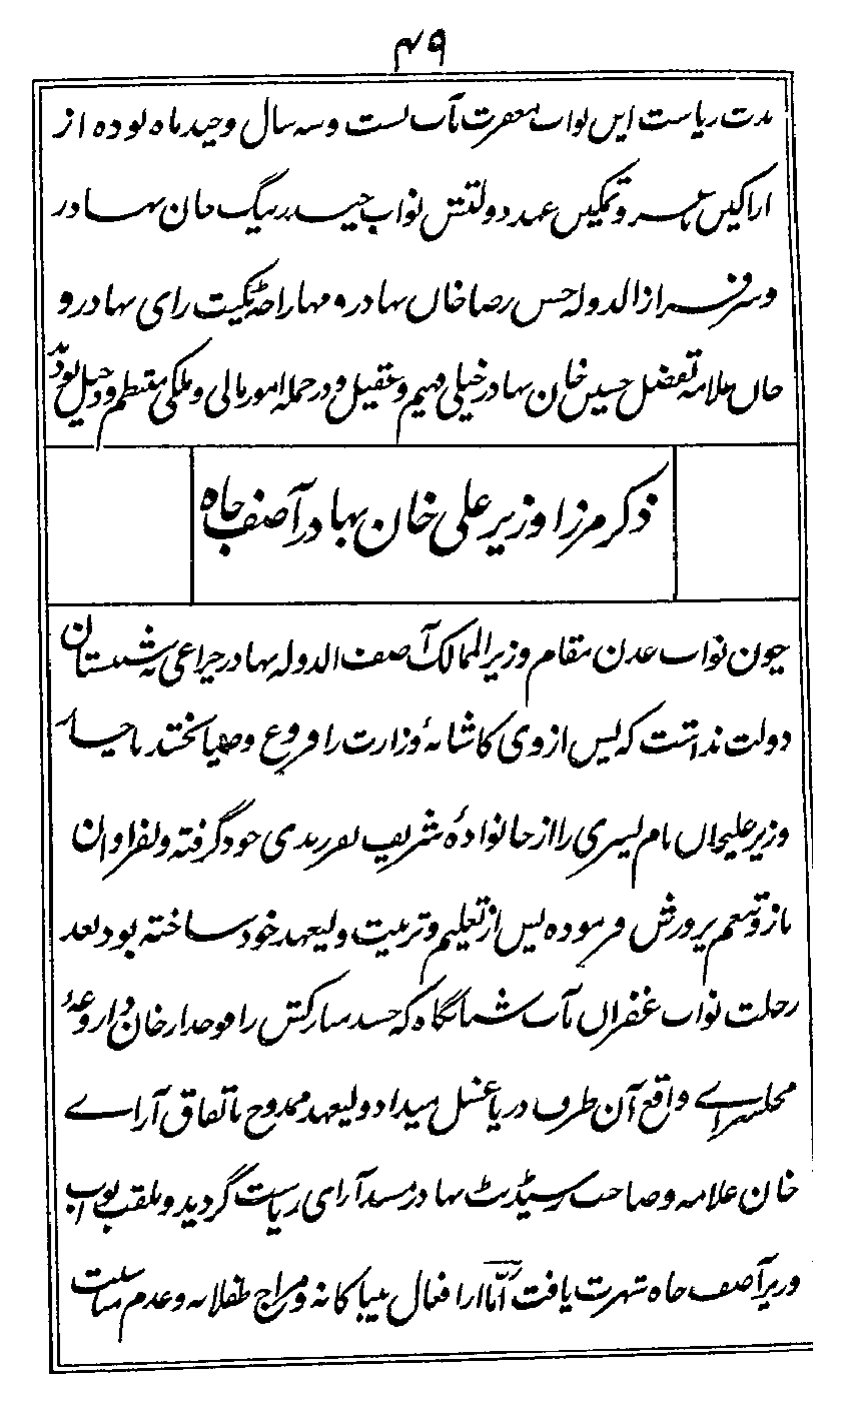 ۴۹
مدت ریاست این نواب مغفرت مآب بست و سه سال و چند ماه بوده از
اراکین با و تمکین عهد دولتش نواب حیدر بیگ خان بهادر
و سرفراز الدوله حسن رضا خان بهادر و مهاراجه ٹکیت رای بهادر و
خان علامه تفضل حسین خان بهادر خیلی فهیم و عقیل و در جمله امور مالی و ملکی منتظم و دخیل بودند
ذکر مرزا وزیر علی خان بهادر آصف جاه
چون نواب عدن مقام وزیر الممالک آصف الدوله بهادر چراغی به شبستان
دولت نداشت که پس از وی کاشانهٔ وزارت را فروغ و ضیا بخشد ناچار
وزیر علیخان نام پسری را از خانوادهٔ شریف بفرزندی خود گرفته و بفراوان
ناز و تنعم پرورش فرموده پس از تعلیم و تربیت ولیعهد خود ساخته بود بعد
رحلت نواب غفران مآب شبانگاه که جسد مبارکش را فوجدار خان داروغهٔ
محلسرای واقع آن طرف دریا غسل میداد ولیعهد ممدوح باتفاق آراے
خان علامه و صاحب رسیڈنٹ بهادر مسند آرای ریاست گردید و ملقب بنواب
وزیر آصف جاه شهرت یافت امّا از افعال بیباکانه و مزاج طفلانه و عدم مناسبت